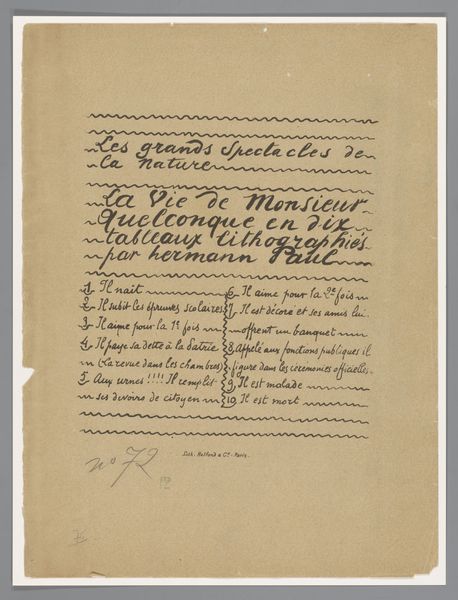 Les grands Spectacles de
La nature
La Vie de Monsieur
Quelconque en dix
tableaux lithographiés
par hermann Paul
1 Il nait
2 Il subit les épreuves scolaires
3 Il aime pour la 1e fois
4 Il paye sa dette à la Patrie
(La revue dans les chambres)
5 Aux urnes !!!! Il remplit
ses devoirs de citoyen
6 Il aime pour la 2e fois
7 Il est décoré et ses amis lui
offrent un banquet
8 Appelé aux fonctions publiques il
figure dans les cérémonies officielles.
9 Il est malade
10 Il est mort
Lith. Belfond & Cie. Paris.
no 72